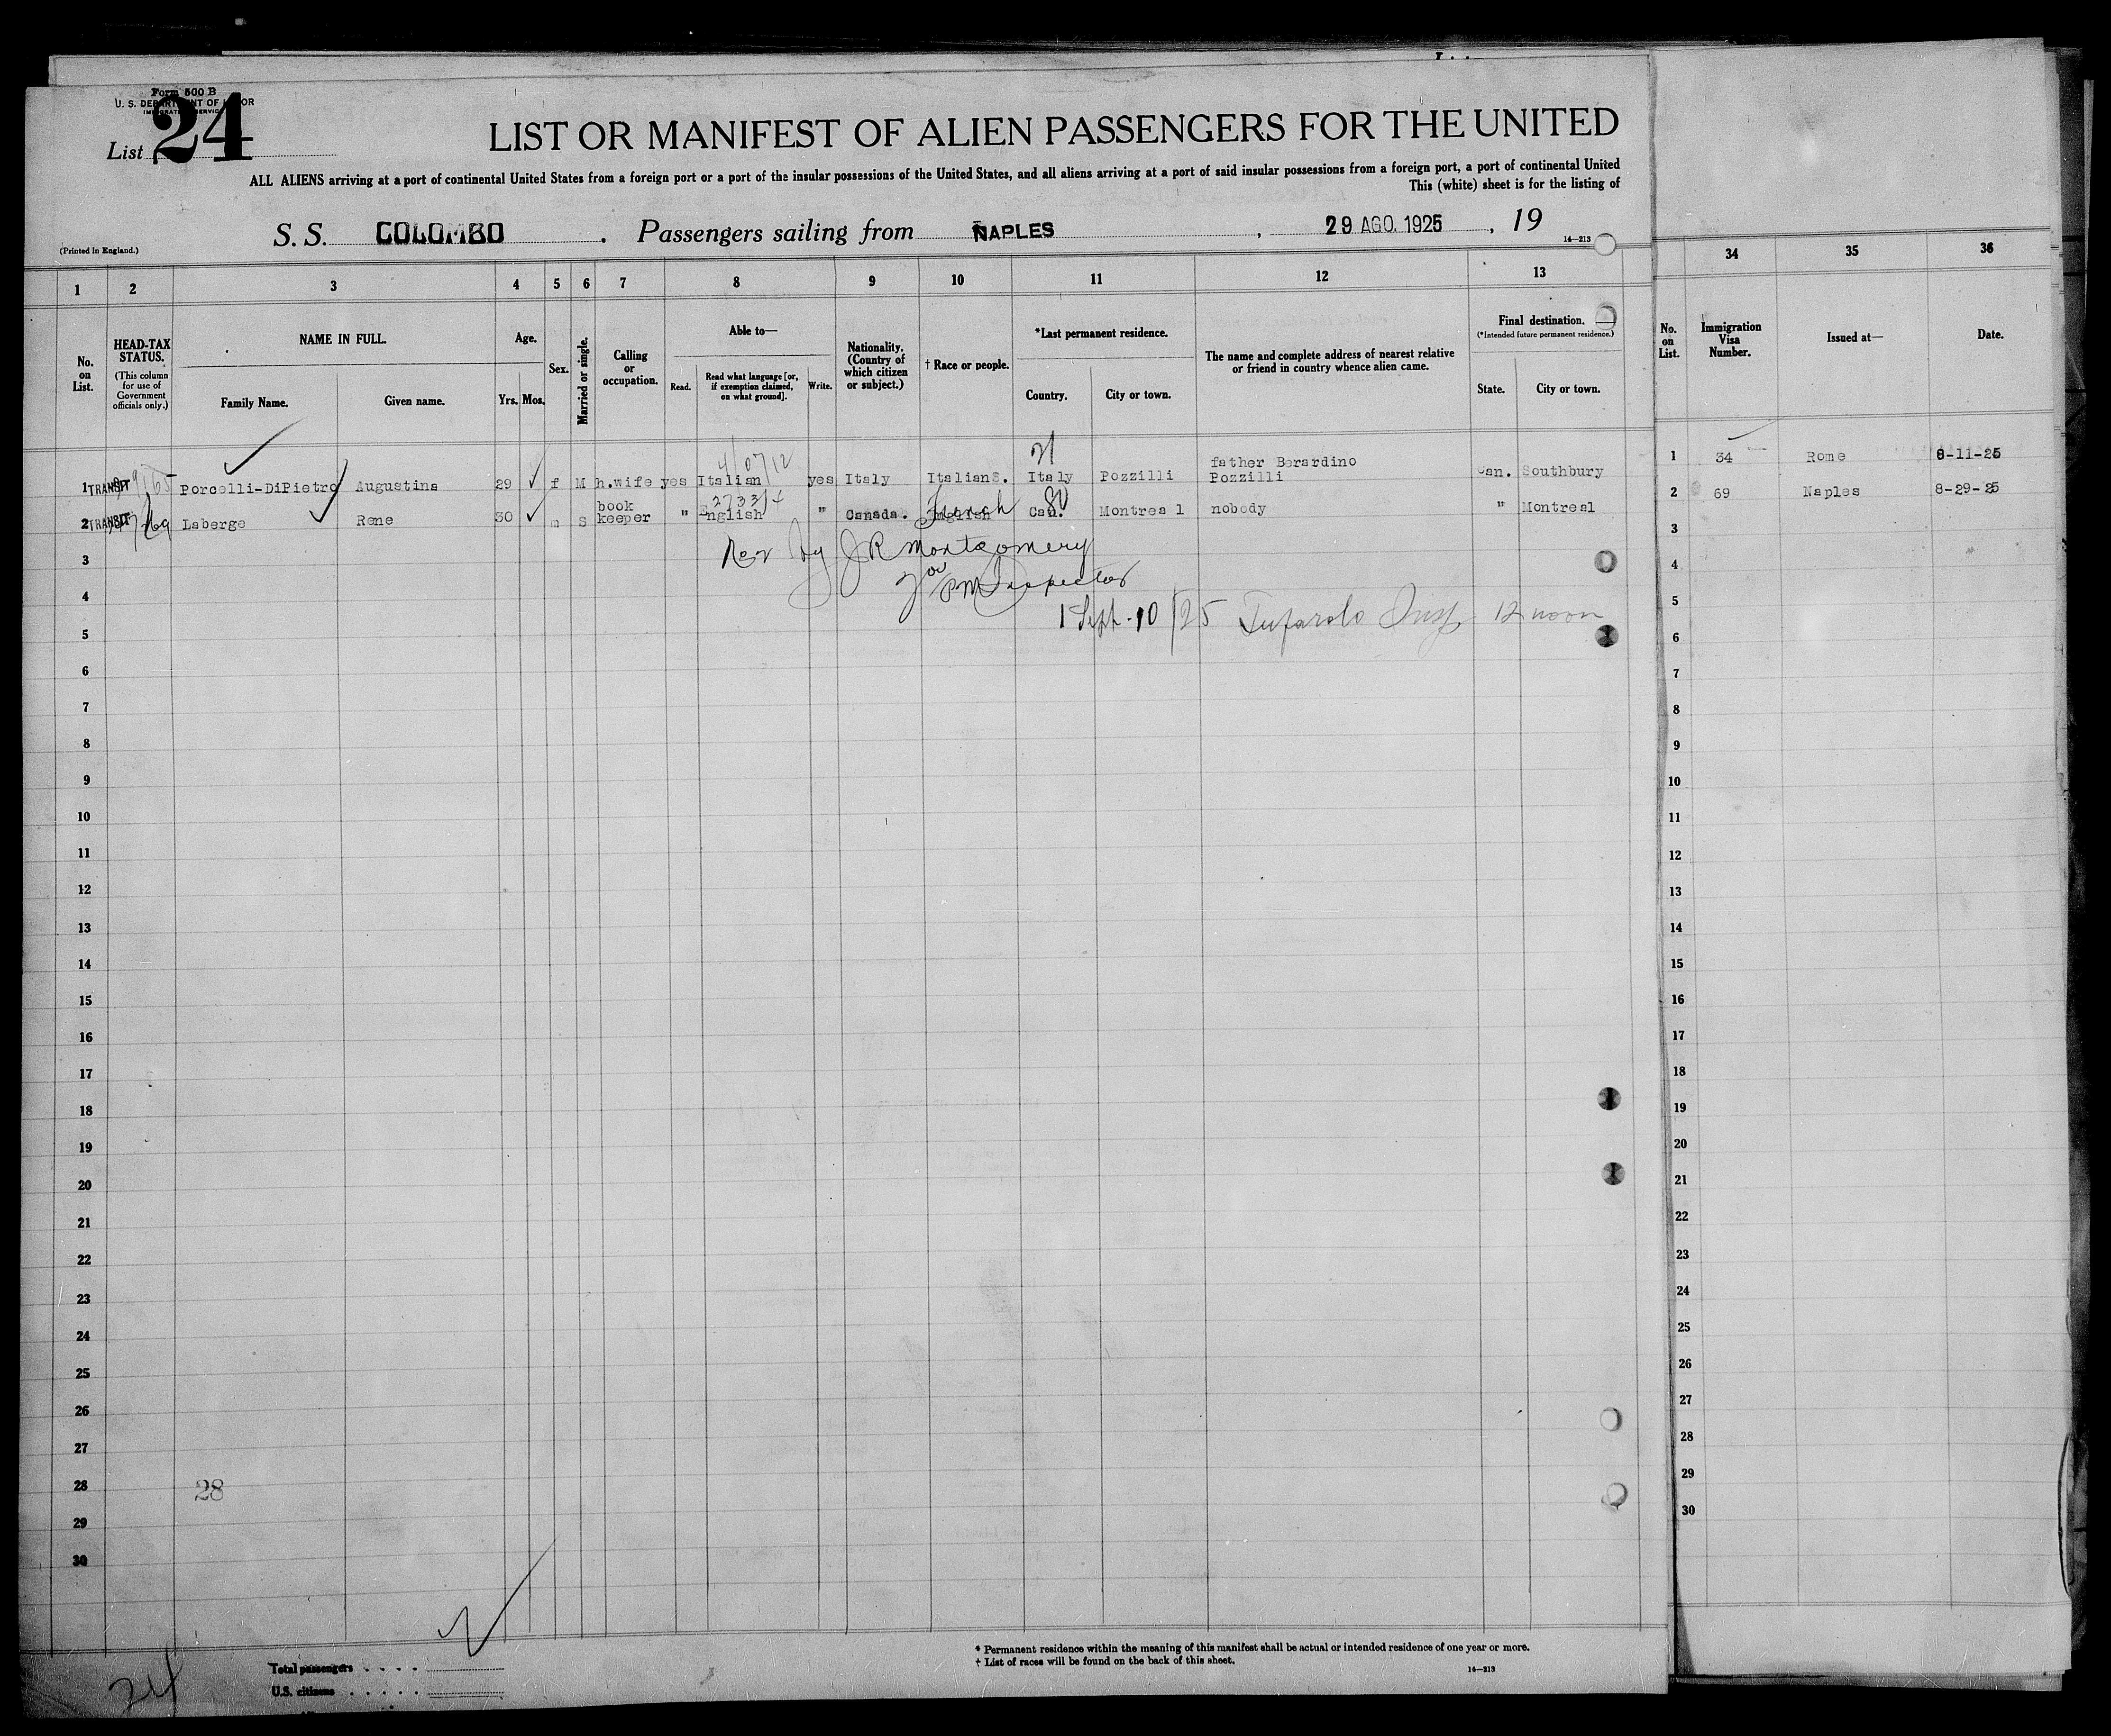 Form 500 B
U. S. DEPARTMENT OF LABOR
IMMIGRATION SERVICE
List 24
LIST OR MANIFEST OF ALIEN PASSENGERS FOR THE UNITED
ALL ALIENS arriving at a port of continental United States from a foreign port or a port of the insular possessions of the United States, and all aliens arriving at a port of said insular possessions from a foreign port, a port of continental United
This (white) sheet is for the listing of
S. S. COLOMBO . Passengers sailing from NAPLES , 29 AGO. 1925 , 19
(Printed in England.)
14—213
1 2 3 4 5 6 7 8 9 10 11 12 13 34 35 36
No. on List.
HEAD-TAX STATUS.
(This column for use of Government officials only.)
NAME IN FULL.
Family Name. Given name.
Age.
Yrs. Mos.
Sex.
Married or single.
Calling or occupation.
Able to—
Read. Read what language [or, if exemption claimed, on what ground]. Write.
Nationality. (Country of which citizen or subject.)
† Race or people.
*Last permanent residence.
Country. City or town.
The name and complete address of nearest relative or friend in country whence alien came.
Final destination.
(*Intended future permanent residence.)
State. City or town.
No. on List.
Immigration Visa Number.
Issued at—
Date.
1 TRANSIT Porcelli-DiPietro Augustina 29 f M h.wife yes Italian yes Italy Italian S. Italy Pozzilli father Berardino Pozzilli Can. Southbury
1 34 Rome 8-11-25
2 TRANSIT Laberge Rene 30 m S book keeper " English " Canada. English French Can. Montreal nobody " Montreal
2 69 Naples 8-29-25
by J R Montgomery
Inspector
1 Sept. 10/25 12 noon
3
4
5
6
7
8
9
10
11
12
13
14
15
16
17
18
19
20
21
22
23
24
25
26
27
28 28
29
30
3
4
5
6
7
8
9
10
11
12
13
14
15
16
17
18
19
20
21
22
23
24
25
26
27
28
29
30
24
Total passengers
U.S. citizens
* Permanent residence within the meaning of this manifest shall be actual or intended residence of one year or more.
† List of races will be found on the back of this sheet.
14—213